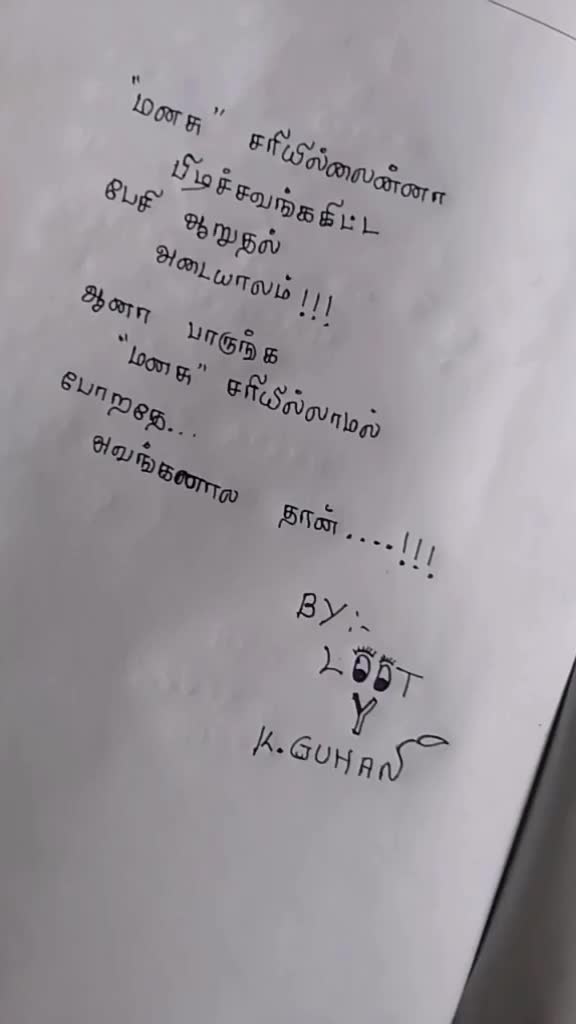 "மனசு" சரியில்லைன்னா
பிடிச்சவங்ககிட்ட
பேசி ஆறுதல்
அடையாலம் !!!
ஆனா பாருங்க
"மனசு" சரியில்லாமல்
போறதே...
அவங்கனால தான்.....!!!
BY:-
LOOT
Y
K.GUHAN